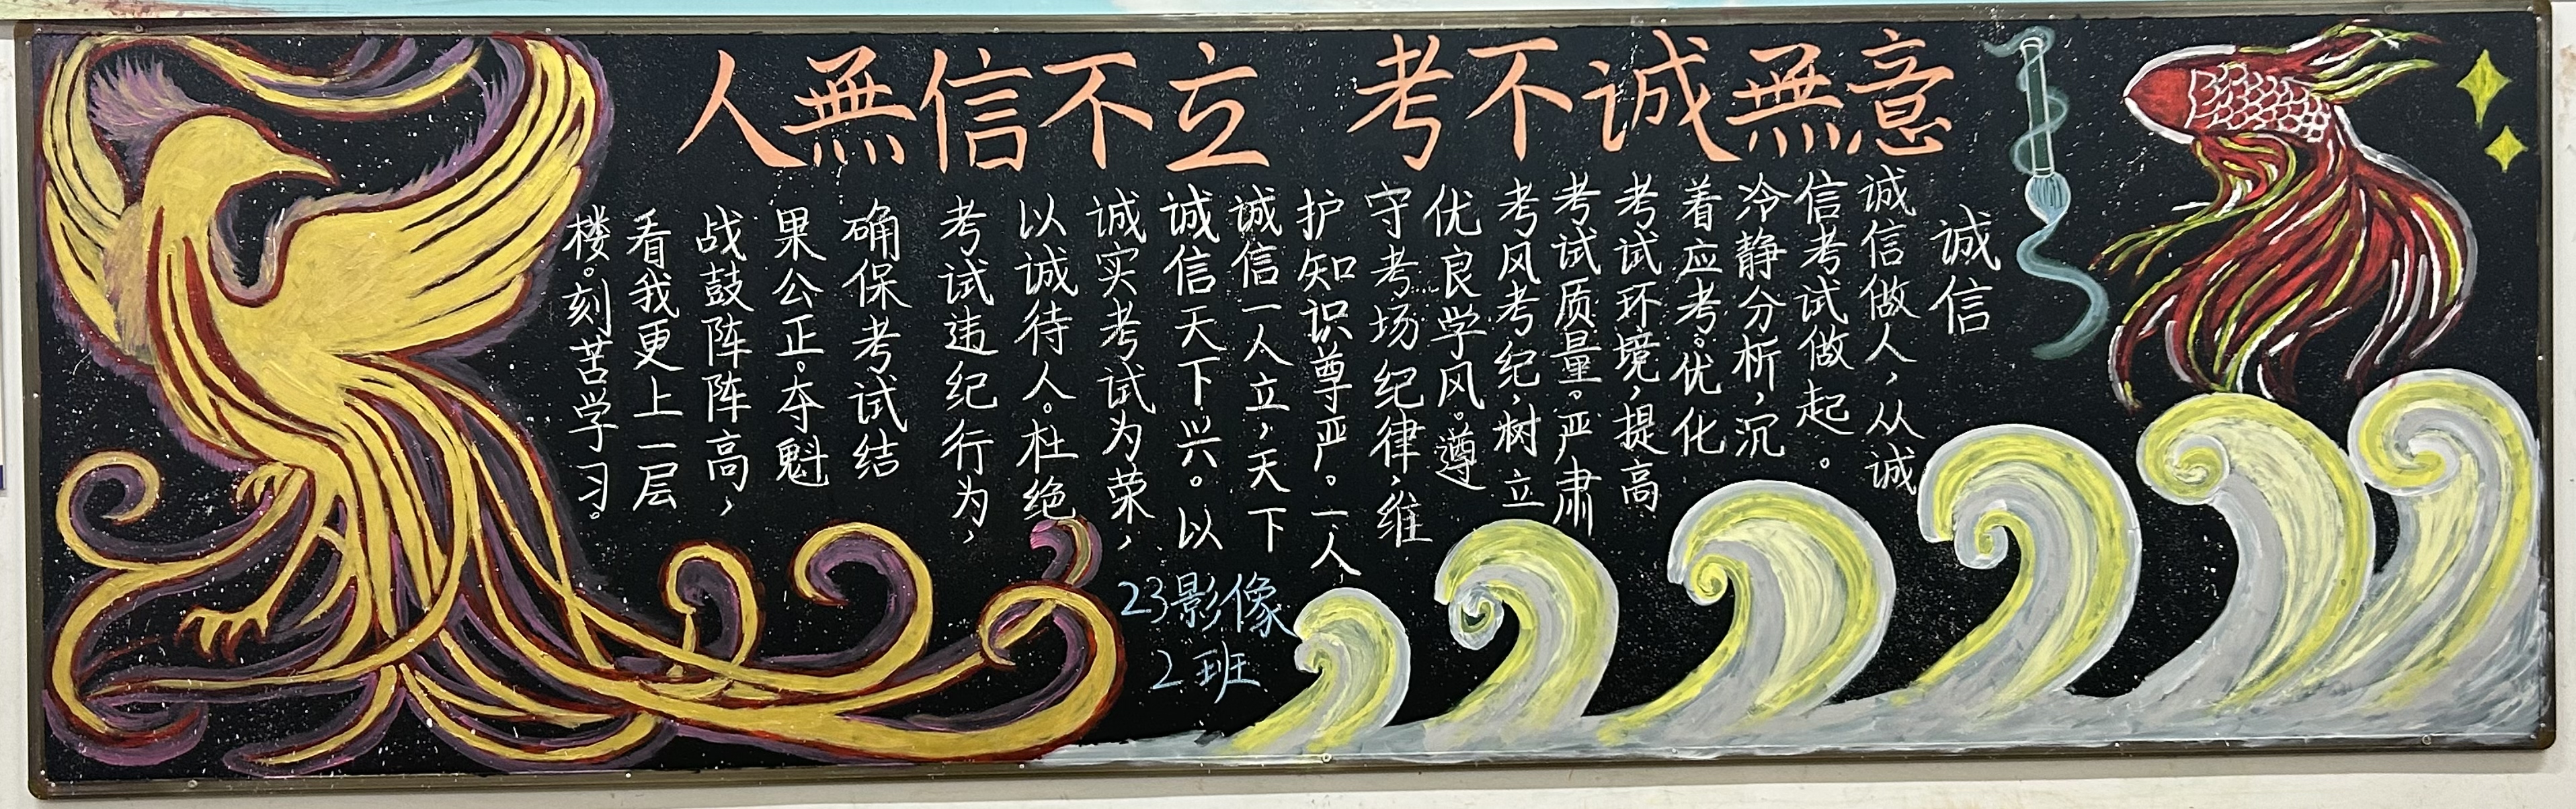 人無信不立 考不诚無意
诚信
诚信做人，从诚
信考试做起。
冷静分析，沉
着应考。优化
考试环境，提高
考试质量。严肃
考风考纪，树立
优良学风。遵
守考场纪律，维
护知识尊严。一人
诚信一人立，天下
诚信天下兴。以
诚实考试为荣，
以诚待人。杜绝
考试违纪行为，
确保考试结
果公正。夺魁
战鼓阵阵高，
看我更上一层
楼。刻苦学习。
23影像
2班